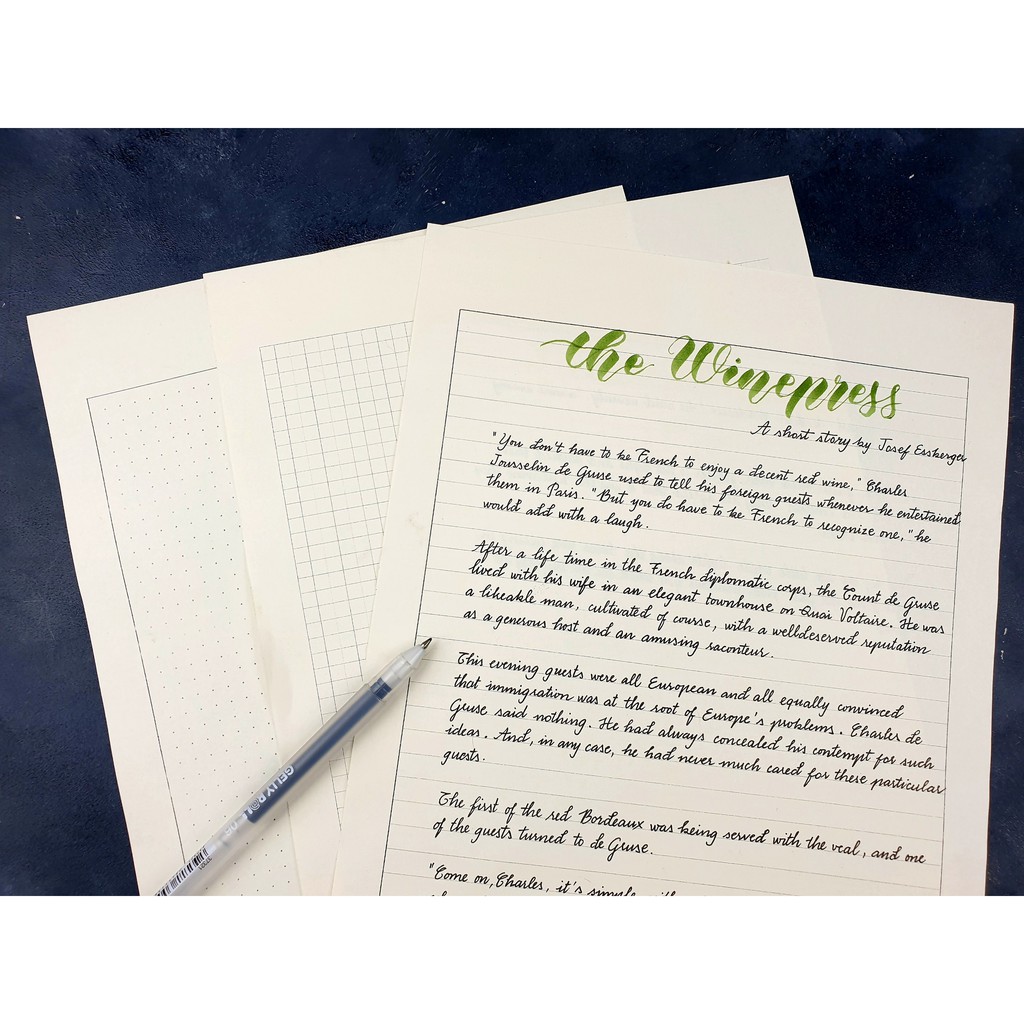 the Winepress
A short story by Josef Essberger
"You don't have to be French to enjoy a decent red wine," Charles
Jousselin de Gruse used to tell his foreign guests whenever he entertained
them in Paris. "But you do have to be French to recognize one," he
would add with a laugh.
After a life time in the French diplomatic corps, the Count de Gruse
lived with his wife in an elegant townhouse on Quai Voltaire. He was
a likeable man, cultivated of course, with a welldeserved reputation
as a generous host and an amusing raconteur.
This evening guests were all European and all equally convinced
that immigration was at the root of Europe's problems. Charles de
Gruse said nothing. He had always concealed his contempt for such
ideas. And, in any case, he had never much cared for these particular
guests.
The first of the red Bordeaux was being served with the veal, and one
of the guests turned to de Gruse.
"Come on, Charles, it's
GELLY ROLL